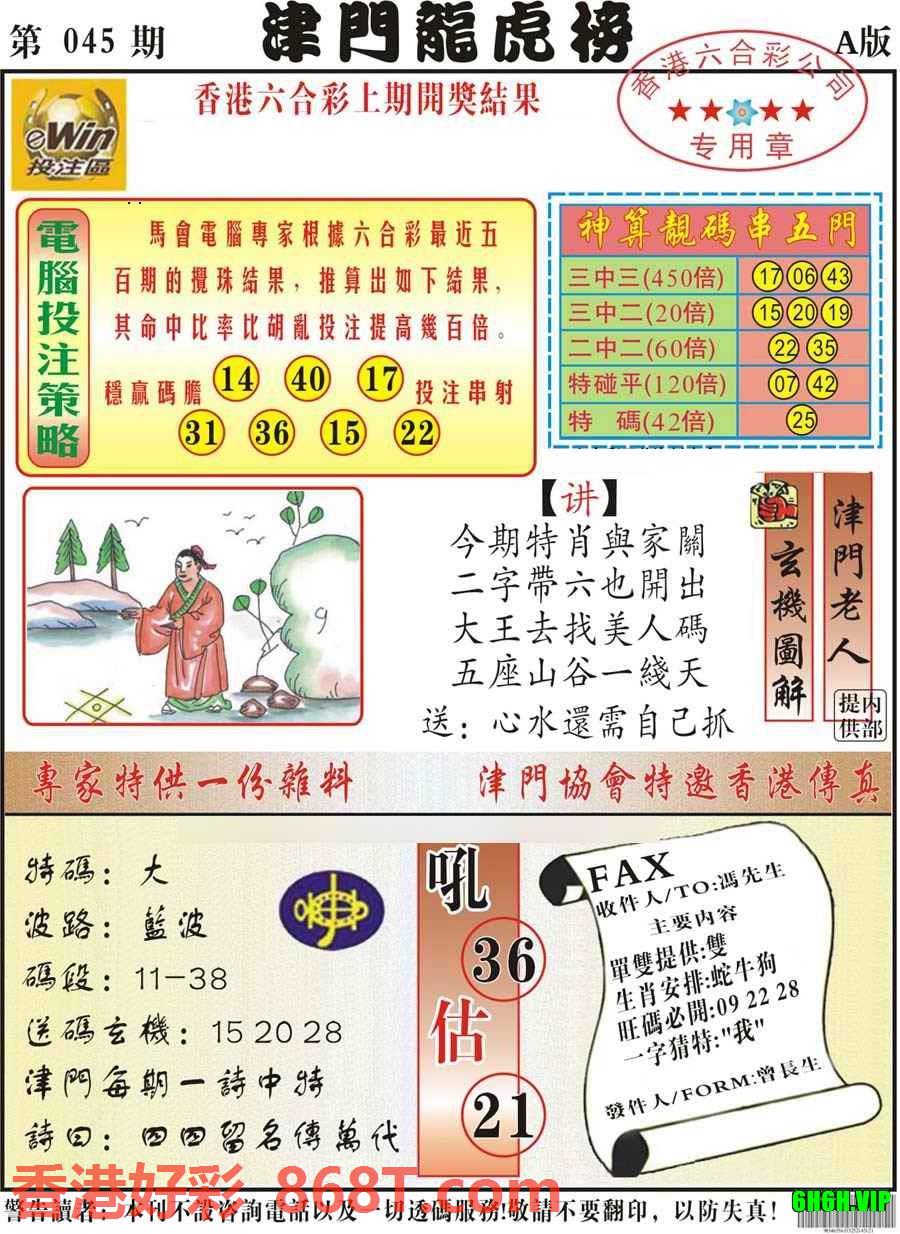 第 045 期
津門龍虎榜
A版
eWin
投注區
香港六合彩上期開獎結果
香港六合彩公司
★★★★
专用章
電腦投注策略
馬會電腦專家根據六合彩最近五
百期的攪珠結果，推算出如下結果，
其命中比率比胡亂投注提高幾百倍。
穩贏碼膽 14 40 17 投注串射
31 36 15 22
神算靚碼串五門
三中三(450倍) 17 06 43
三中二(20倍) 15 20 19
二中二(60倍) 22 35
特碰平(120倍) 07 42
特 碼(42倍) 25
【讲】
今期特肖與家關
二字帶六也開出
大王去找美人碼
五座山谷一綫天
送：心水還需自己抓
玄機圖解
津門老人
内部提供
專家特供一份雜料
津門協會特邀香港傳真
特碼：大
波路：藍波
碼段：11-38
送碼玄機：15 20 28
津門每期一詩中特
詩曰：四四留名傳萬代
吼
36
估
21
FAX
收件人/TO:馮先生
主要内容
單雙提供:雙
生肖安排:蛇牛狗
旺碼必開:09 22 28
一字猜特:"我"
發件人/FORM:曾長生
香港好彩 868T.com
警告讀者：本刊不設咨詢電話以及一切透碼服務!敬請不要翻印，以防失真！
6H6H.VIP